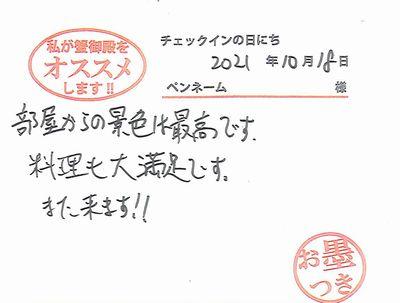 私が蟹御殿を
オススメ
します!!
チェックインの日にち
2021 年 10 月 18 日
ペンネーム 様
部屋からの景色は最高です。
料理も大満足です。
また来ます!!
お墨
つき